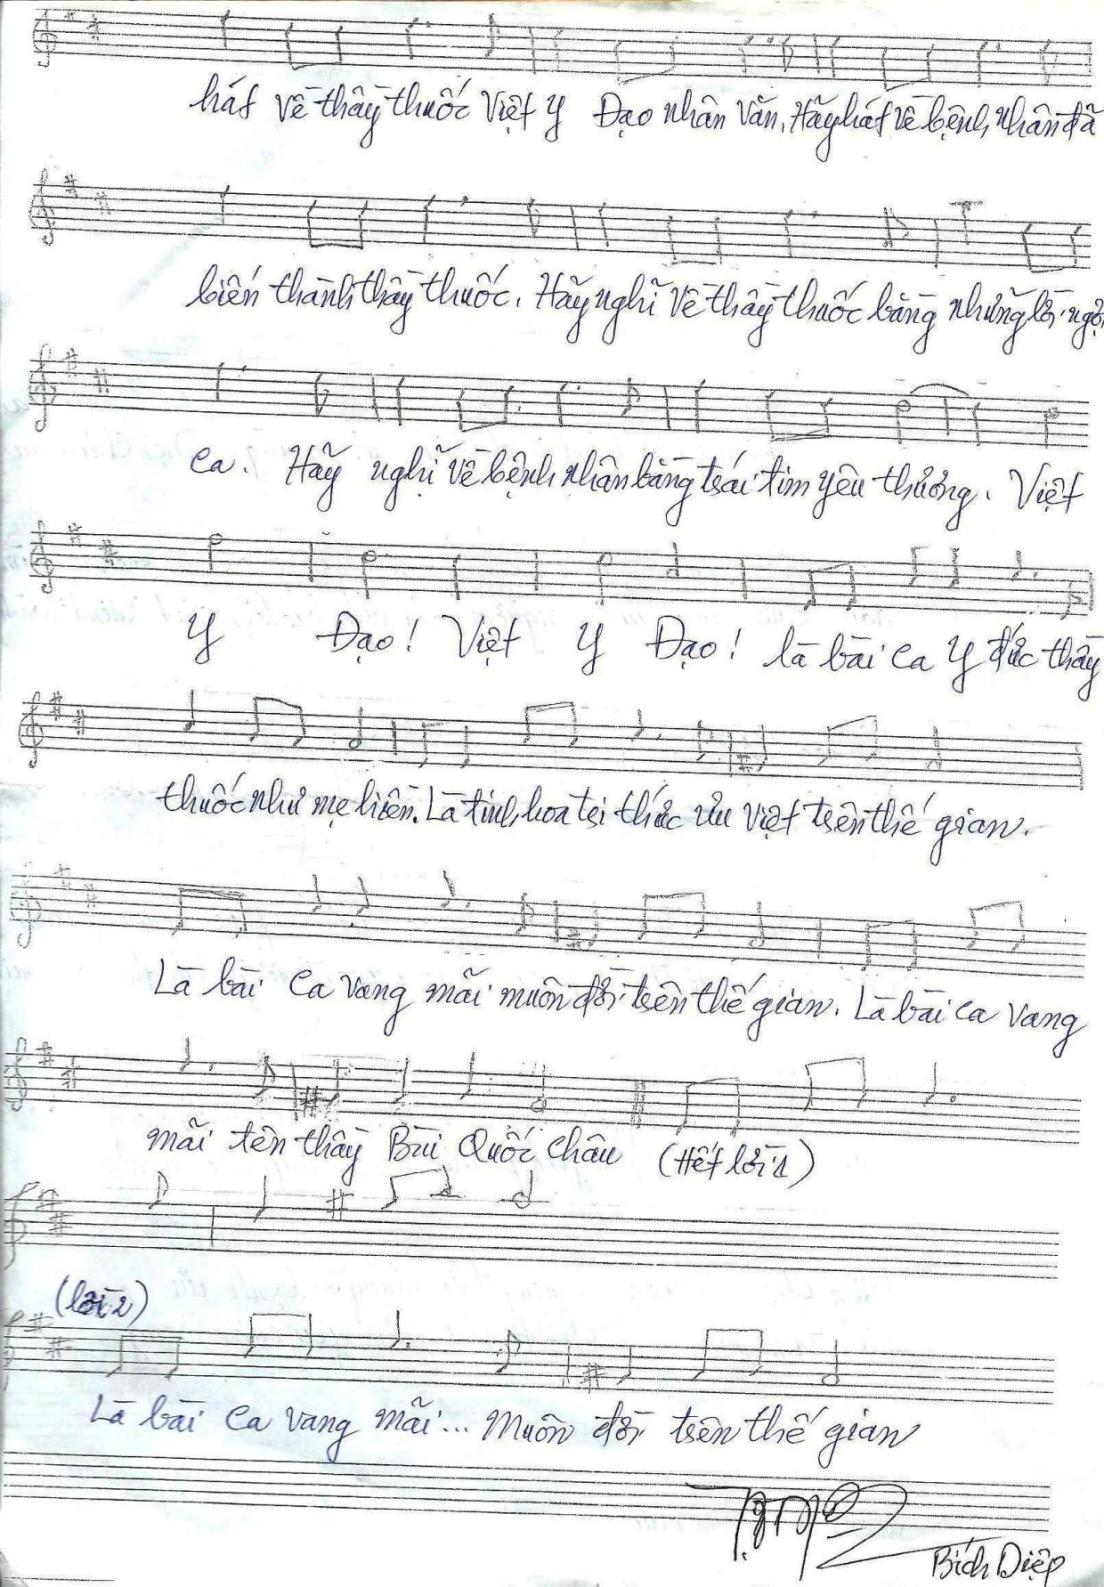 hát Về thầy thuốc Việt Y Đạo nhân văn. Hãy hát về bệnh nhân đã
biến thành thầy thuốc. Hãy nghĩ Về thầy thuốc bằng những lời ngợi
ca. Hãy nghĩ về bệnh nhân bằng trái tim yêu thương. Việt
Y Đạo! Việt Y Đạo! là bài ca Y đức thầy
thuốc như mẹ hiền. Là tinh hoa tri thức ưu Việt trên thế gian.
Là bài ca vang mãi muôn đời trên thế gian. Là bài ca vang
mãi tên thầy Bùi Quốc Châu (Hết lời 1)
(lời 2)
Là bài ca vang mãi... Muôn đời trên thế gian
Bích Diệp